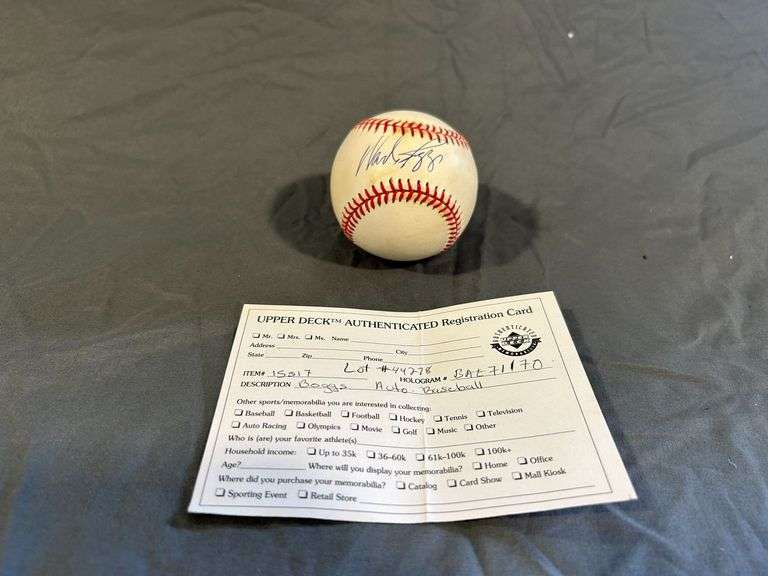 Wade Boggs
UPPER DECK™ AUTHENTICATED Registration Card
☐ Mr. ☐ Mrs. ☐ Ms. Name
Address
City
State Zip Phone
AUTHENTICATED
MEMORABILIA
Lot #44278
ITEM# 15517 HOLOGRAM #
DESCRIPTION Boggs Auto. Baseball
Other sports/memorabilia you are interested in collecting:
☐ Baseball ☐ Basketball ☐ Football ☐ Hockey ☐ Tennis ☐ Television
☐ Auto Racing ☐ Olympics ☐ Movie ☐ Golf ☐ Music ☐ Other
Who is (are) your favorite athlete(s)
Household income: ☐ Up to 35k ☐ 36-60k ☐ 61k-100k ☐ 100k+
Age? Where will you display your memorabilia? ☐ Home ☐ Office
Where did you purchase your memorabilia? ☐ Catalog ☐ Card Show ☐ Mall Kiosk
☐ Sporting Event ☐ Retail Store